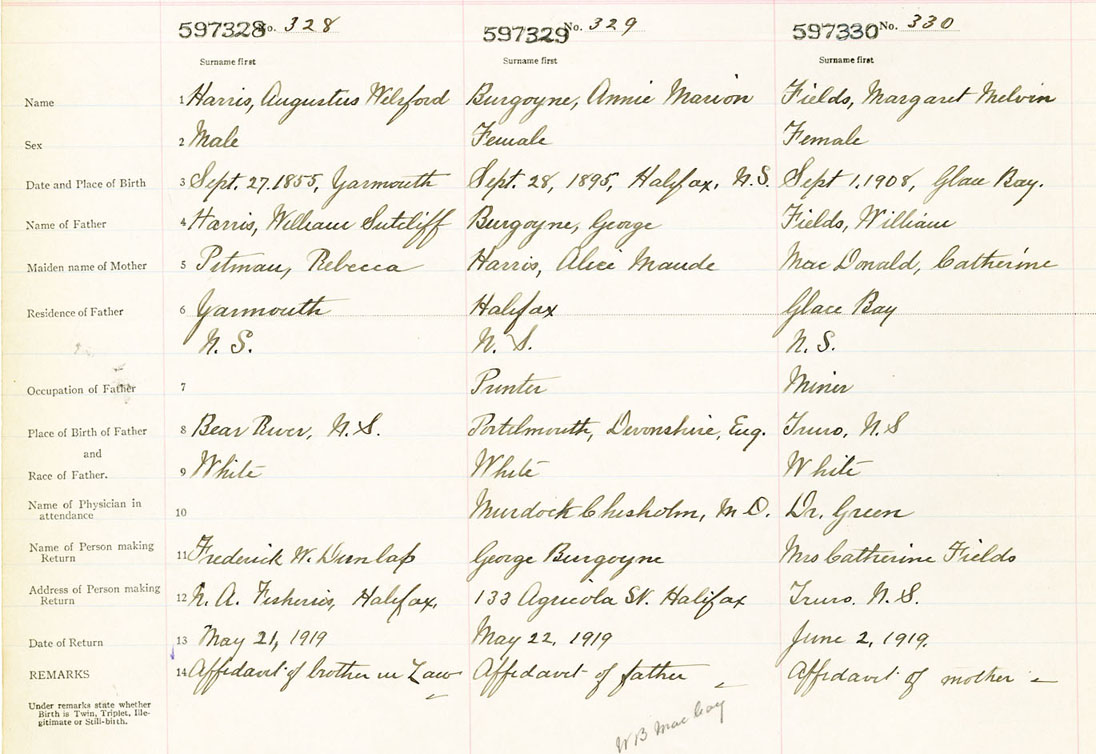 597328 No. 328 597329 No. 329 597330 No. 330
Surname first Surname first Surname first
Name 1 Harris, Augustus Welsford Burgoyne, Annie Marion Fields, Margaret Melvin
Sex 2 Male Female Female
Date and Place of Birth 3 Sept. 27. 1855, Yarmouth Sept. 28, 1895, Halifax, N.S. Sept 1, 1908, Glace Bay.
Name of Father 4 Harris, William Sutcliff Burgoyne, George Fields, William
Maiden name of Mother 5 Petman, Rebecca Harris, Alice Maude MacDonald, Catherine
Residence of Father 6 Yarmouth Halifax Glace Bay
N. S. N. S. N. S.
Occupation of Father 7 Printer Miner
Place of Birth of Father 8 Bear River, N.S. Devonshire, Eng. Truro, N.S
and
Race of Father. 9 White White White
Name of Physician in Murdock Chisholm, M.D. Dr. Green
attendance 10
Name of Person making 11 Frederick W. Dunlap George Burgoyne Mrs Catherine Fields
Return
Address of Person making 12 N. A. Fisheries, Halifax, 133 Agricola St. Halifax Truro. N.S.
Return
Date of Return 13 May 21, 1919 May 22, 1919 June 2, 1919.
REMARKS 14 Affidavit of brother in Law Affidavit of father Affidavit of mother
Under remarks state whether
Birth is Twin, Triplet, Ille-
gitimate or Still-birth.
W B MacCoy